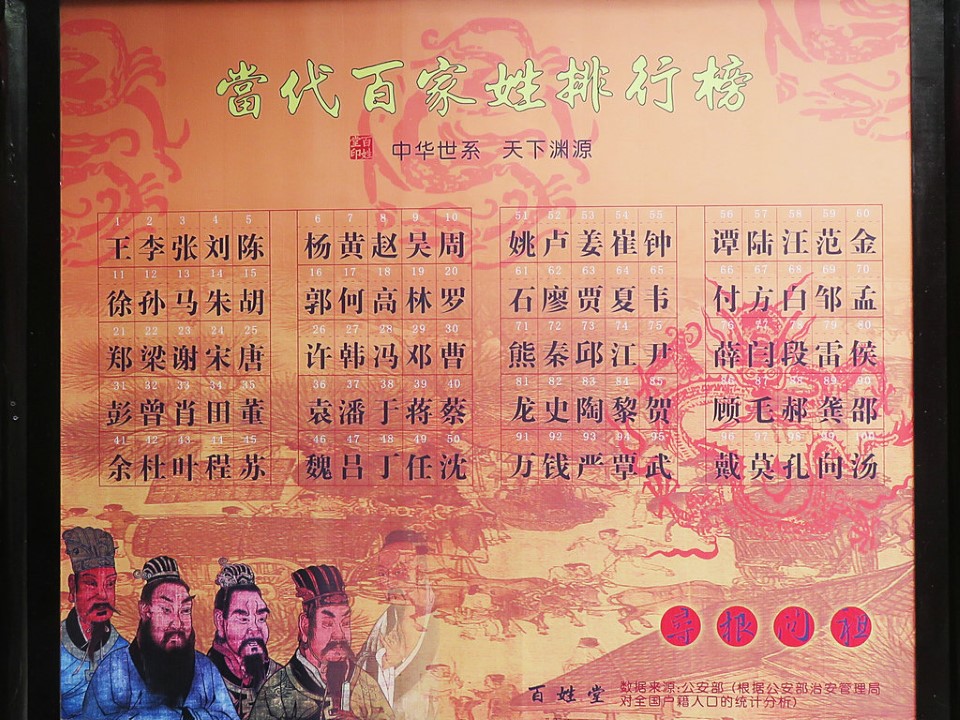 當代百家姓排行榜
百姓堂印
中华世系 天下渊源
1 2 3 4 5 6 7 8 9 10
王 李 张 刘 陈 杨 黄 赵 吴 周
11 12 13 14 15 16 17 18 19 20
徐 孙 马 朱 胡 郭 何 高 林 罗
21 22 23 24 25 26 27 28 29 30
郑 梁 谢 宋 唐 许 韩 冯 邓 曹
31 32 33 34 35 36 37 38 39 40
彭 曾 肖 田 董 袁 潘 于 蒋 蔡
41 42 43 44 45 46 47 48 49 50
余 杜 叶 程 苏 魏 吕 丁 任 沈
51 52 53 54 55 56 57 58 59 60
姚 卢 姜 崔 钟 谭 陆 汪 范 金
61 62 63 64 65 66 67 68 69 70
石 廖 贾 夏 韦 付 方 白 邹 孟
71 72 73 74 75 76 77 78 79 80
熊 秦 邱 江 尹 薛 闫 段 雷 侯
81 82 83 84 85 86 87 88 89 90
龙 史 陶 黎 贺 顾 毛 郝 龚 邵
91 92 93 94 95 96 97 98 99 100
万 钱 严 覃 武 戴 莫 孔 向 汤
寻根问祖
百姓堂
数据来源:公安部（根据公安部治安管理局
对全国户籍人口的统计分析）